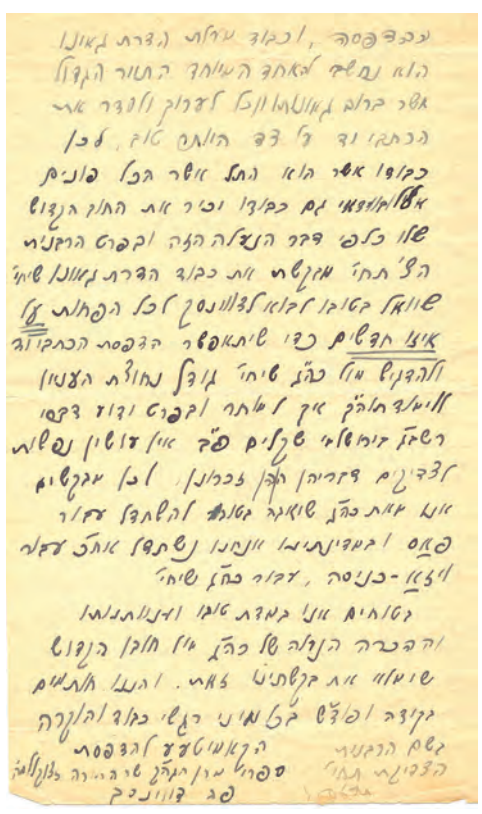 בהדפסה, וכבוד מעלת הדרת גאונו
הוא נחשב לאחד המיוחד התור הגדול
אשר ברוב גאונותו יוכל לערוך ולסדר את
הכתבי יד על צד היותר טוב, לכן
כבודו אשר הוא התל אשר הכל פונים
אליו בודאי גם כבודו יכיר את החוב הקדוש
שלו כלפי דבר הנעלה הזה ובפרט הרבנית
הצ' תחי' מבקשת את כבוד הדרת גאונו שיחי'
שיואל בטובו לבוא לדווינסק לכל הפחות על
איזו חדשים כדי שיתאפשר הדפסת הכתבי יד
ולהדגיש מול כה"ג שיחי' גודל נחוצת הענין
אך למותר ובפרט ידוע דברי
רשב"ג בירושלמי שקלים פ"ב אין עושין נפשות
לצדיקים דבריהן הן הן זכרונן. לכן מבקשים
אנו מאת כה"ג שיואבה בטובו להשתדל עבור
פאס ובמדינתינו אנחנו נשתדל אח"כ עבור
וויזא-כניסה, עבור כה"ג שיחי'
בטוחים אנו במדת טובו וענוותנותו
וההכרה הגדולה של כה"ג מול חובו הקדוש
שימלא את בקשתינו זאת. והננו חותמים
בקידה ופו"ש בכל מיני רגשי כבוד והוקרה
בשם הרבנית הקאמיטעט להדפסת
הצדיקת תחי' ספרי מרן הגה"ק שר התורה זצוקללה"ה
פה דווינסק